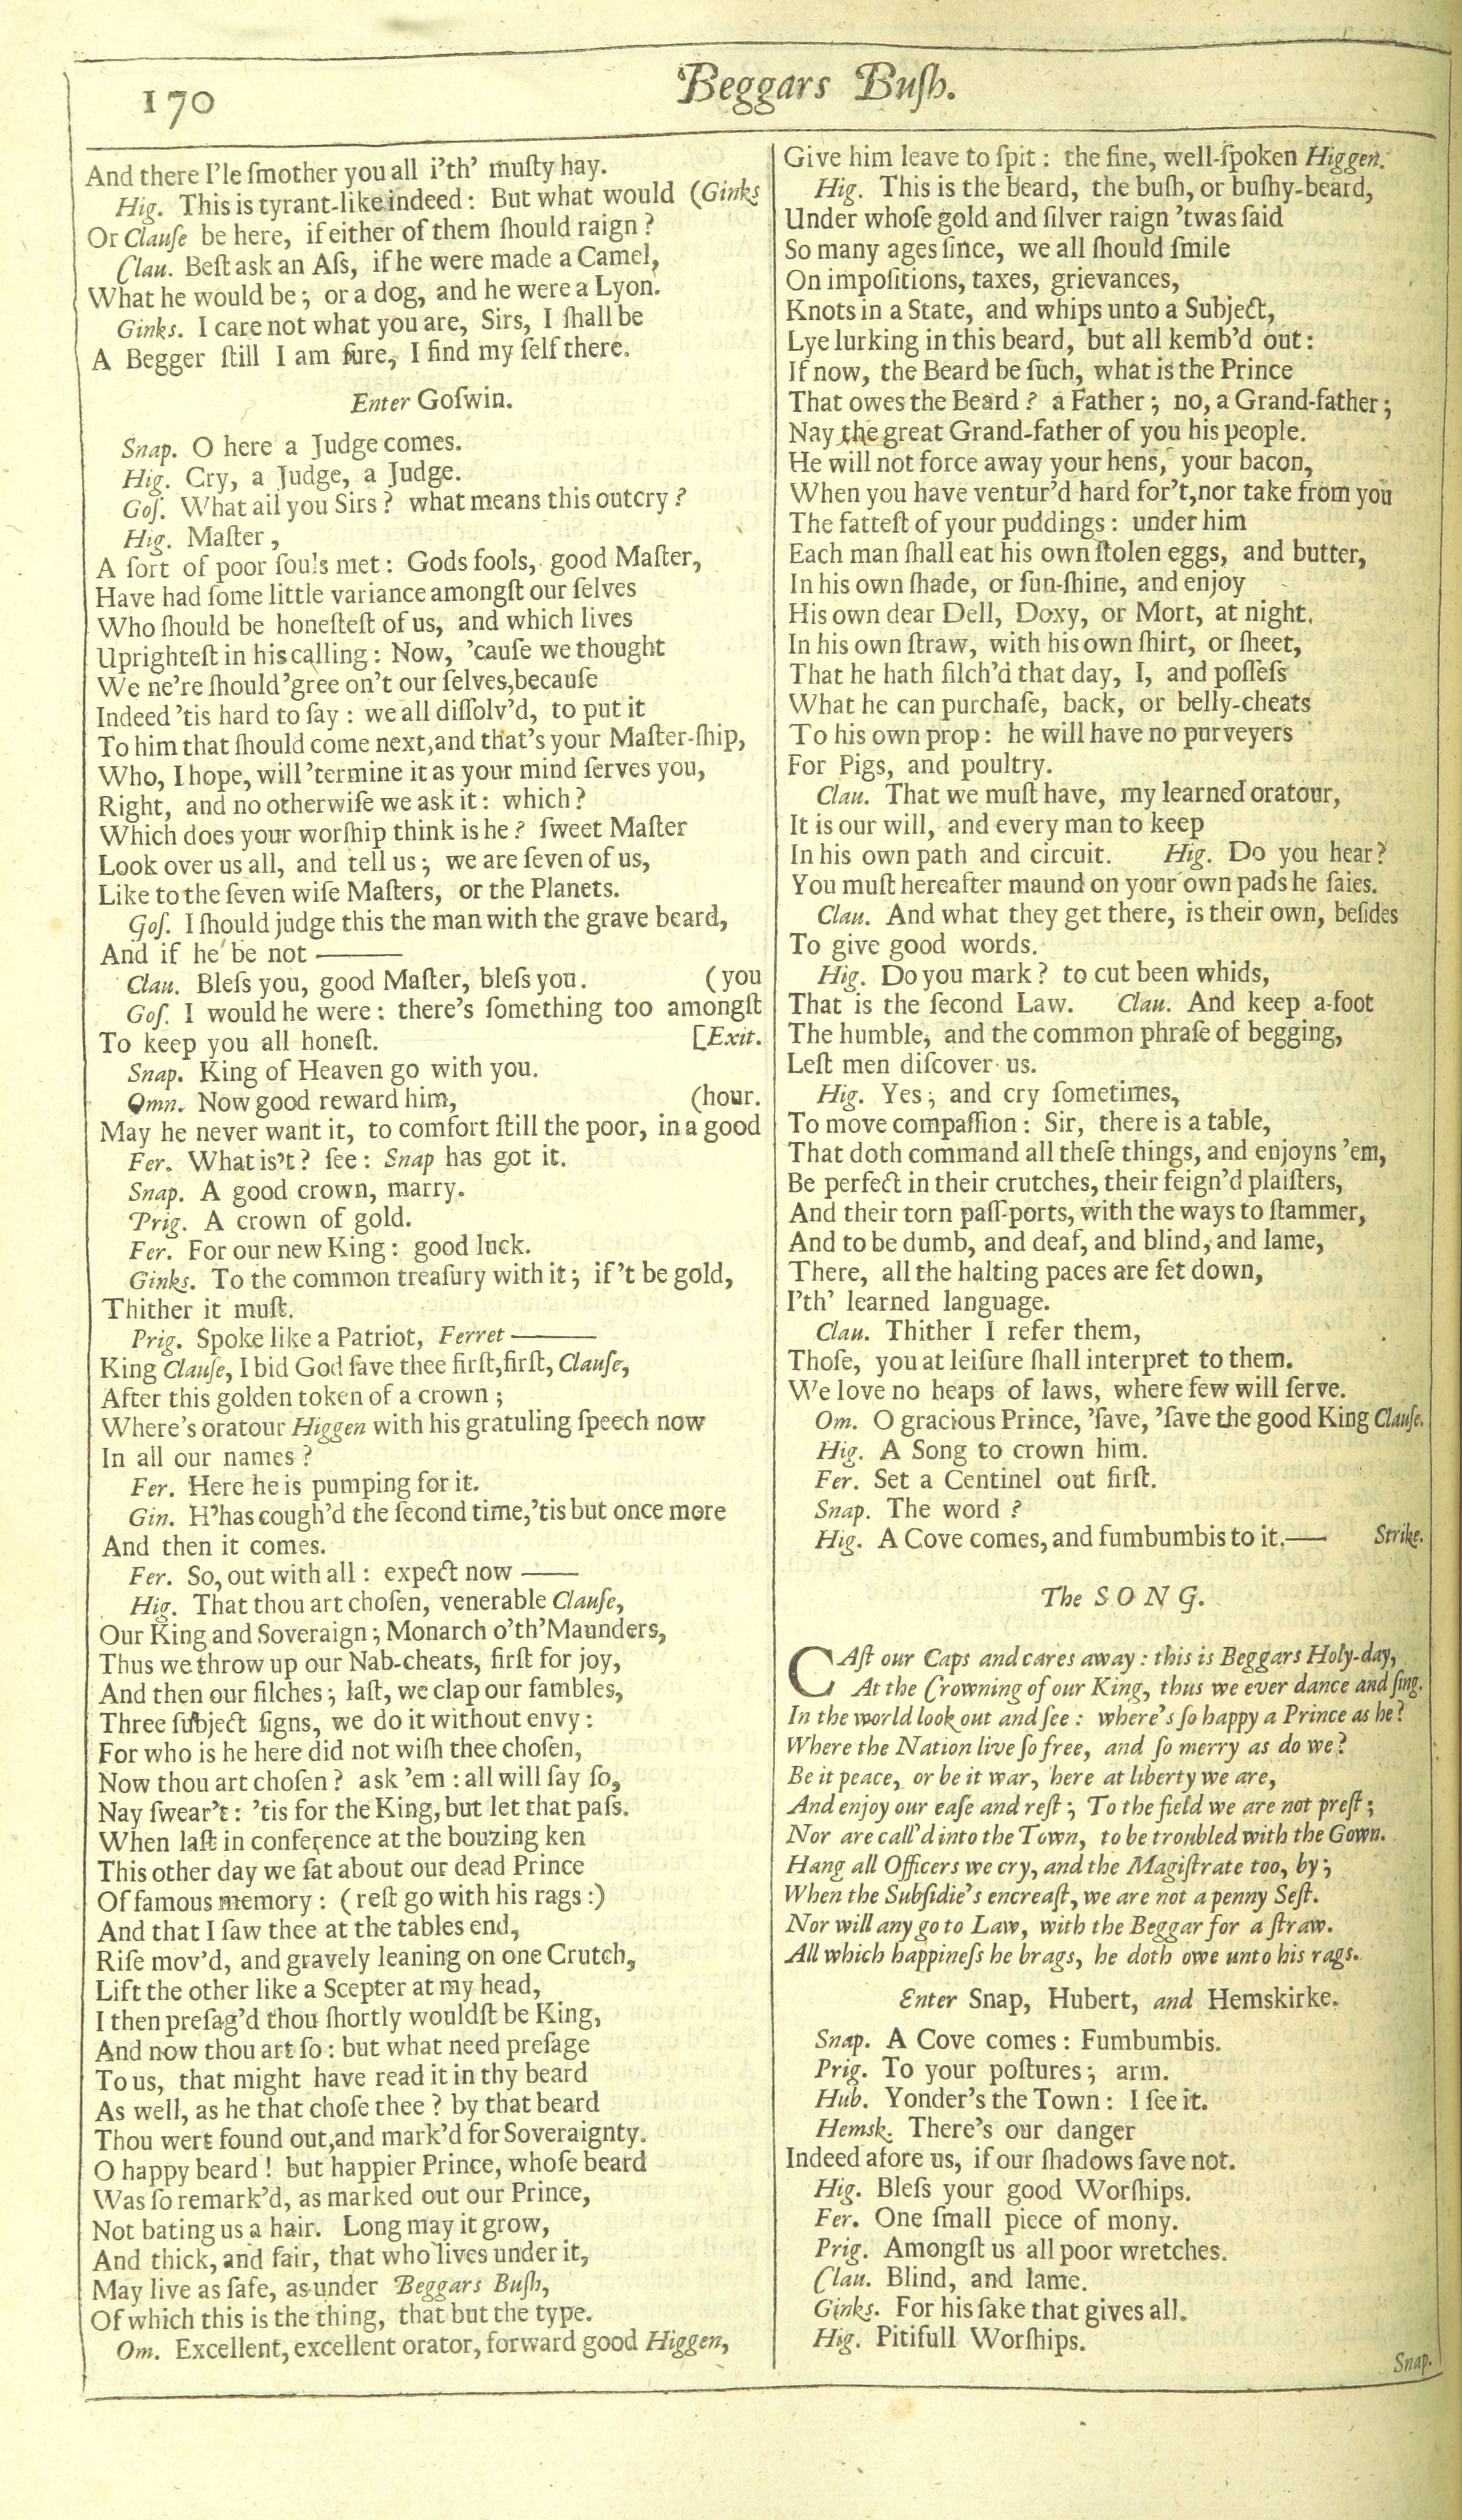 170
Beggars Buſh.
And there I'le ſmother you all i'th' muſty hay.
Hig. This is tyrant-like indeed: But what would (Ginks
Or Clauſe be here, if either of them ſhould raign?
Clau. Beſt ask an Aſs, if he were made a Camel,
What he would be; or a dog, and he were a Lyon.
Ginks. I care not what you are, Sirs, I ſhall be
A Begger ſtill I am ſure, I find my ſelf there.
Enter Goſwin.
Snap. O here a Judge comes.
Hig. Cry, a Judge, a Judge.
Goſ. What ail you Sirs? what means this outcry?
Hig. Maſter,
A ſort of poor ſouls met: Gods fools, good Maſter,
Have had ſome little variance amongſt our ſelves
Who ſhould be honeſteſt of us, and which lives
Uprighteſt in his calling: Now, 'cauſe we thought
We ne're ſhould 'gree on't our ſelves, becauſe
Indeed 'tis hard to ſay: we all diſſolv'd, to put it
To him that ſhould come next, and that's your Maſter-ſhip,
Who, I hope, will 'termine it as your mind ſerves you,
Right, and no otherwiſe we ask it: which?
Which does your worſhip think is he? ſweet Maſter
Look over us all, and tell us; we are ſeven of us,
Like to the ſeven wiſe Maſters, or the Planets.
Goſ. I ſhould judge this the man with the grave beard,
And if he be not ———
Clau. Bleſs you, good Maſter, bleſs you. (you
Goſ. I would he were: there's ſomething too amongſt
To keep you all honeſt. [Exit.
Snap. King of Heaven go with you.
Omn. Now good reward him, (hour.
May he never want it, to comfort ſtill the poor, in a good
Fer. What is't? ſee: Snap has got it.
Snap. A good crown, marry.
Prig. A crown of gold.
Fer. For our new King: good luck.
Ginks. To the common treaſury with it; if 't be gold,
Thither it muſt.
Prig. Spoke like a Patriot, Ferret ———
King Clauſe, I bid God ſave thee firſt, firſt, Clauſe,
After this golden token of a crown;
Where's oratour Higgen with his gratuling ſpeech now
In all our names?
Fer. Here he is pumping for it.
Gin. H'has cough'd the ſecond time, 'tis but once more
And then it comes.
Fer. So, out with all: expect now ——
Hig. That thou art choſen, venerable Clauſe,
Our King and Soveraign; Monarch o'th' Maunders,
Thus we throw up our Nab-cheats, firſt for joy,
And then our filches; laſt, we clap our fambles,
Three ſubject ſigns, we do it without envy:
For who is he here did not wiſh thee choſen,
Now thou art choſen? ask 'em: all will ſay ſo,
Nay ſwear't: 'tis for the King, but let that paſs.
When laſt in conference at the bouzing ken
This other day we ſat about our dead Prince
Of famous memory: (reſt go with his rags:)
And that I ſaw thee at the tables end,
Riſe mov'd, and gravely leaning on one Crutch,
Lift the other like a Scepter at my head,
I then preſag'd thou ſhortly wouldſt be King,
And now thou art ſo: but what need preſage
To us, that might have read it in thy beard
As well, as he that choſe thee? by that beard
Thou wert found out, and mark'd for Soveraignty.
O happy beard! but happier Prince, whoſe beard
Was ſo remark'd, as marked out our Prince,
Not bating us a hair. Long may it grow,
And thick, and fair, that who lives under it,
May live as ſafe, as under Beggars Buſh,
Of which this is the thing, that but the type.
Om. Excellent, excellent orator, forward good Higgen,
Give him leave to ſpit: the fine, well-ſpoken Higgen.
Hig. This is the beard, the buſh, or buſhy-beard,
Under whoſe gold and ſilver raign 'twas ſaid
So many ages ſince, we all ſhould ſmile
On impoſitions, taxes, grievances,
Knots in a State, and whips unto a Subject,
Lye lurking in this beard, but all kemb'd out:
If now, the Beard be ſuch, what is the Prince
That owes the Beard? a Father; no, a Grand-father;
Nay the great Grand-father of you his people.
He will not force away your hens, your bacon,
When you have ventur'd hard for't, nor take from you
The fatteſt of your puddings: under him
Each man ſhall eat his own ſtolen eggs, and butter,
In his own ſhade, or ſun-ſhine, and enjoy
His own dear Dell, Doxy, or Mort, at night.
In his own ſtraw, with his own ſhirt, or ſheet,
That he hath filch'd that day, I, and poſſeſs
What he can purchaſe, back, or belly-cheats
To his own prop: he will have no purveyers
For Pigs, and poultry.
Clau. That we muſt have, my learned oratour,
It is our will, and every man to keep
In his own path and circuit. Hig. Do you hear?
You muſt hereafter maund on your own pads he ſaies.
Clau. And what they get there, is their own, beſides
To give good words.
Hig. Do you mark? to cut been whids,
That is the ſecond Law. Clau. And keep a-foot
The humble, and the common phraſe of begging,
Leſt men diſcover us.
Hig. Yes; and cry ſometimes,
To move compaſſion: Sir, there is a table,
That doth command all theſe things, and enjoyns 'em,
Be perfect in their crutches, their feign'd plaiſters,
And their torn paſſ-ports, with the ways to ſtammer,
And to be dumb, and deaf, and blind, and lame,
There, all the halting paces are ſet down,
I'th' learned language.
Clau. Thither I refer them,
Thoſe, you at leiſure ſhall interpret to them.
We love no heaps of laws, where few will ſerve.
Om. O gracious Prince, 'ſave, 'ſave the good King Clauſe.
Hig. A Song to crown him.
Fer. Set a Centinel out firſt.
Snap. The word?
Hig. A Cove comes, and fumbumbis to it.—— Strike.
The SONG.
CAſt our Caps and cares away: this is Beggars Holy-day,
At the Crowning of our King, thus we ever dance and ſing.
In the world look out and ſee: where's ſo happy a Prince as he?
Where the Nation live ſo free, and ſo merry as do we?
Be it peace, or be it war, here at liberty we are,
And enjoy our eaſe and reſt; To the field we are not preſt;
Nor are call'd into the Town, to be troubled with the Gown.
Hang all Officers we cry, and the Magiſtrate too, by;
When the Subſidie's encreaſt, we are not a penny Seſt.
Nor will any go to Law, with the Beggar for a ſtraw.
All which happineſs he brags, he doth owe unto his rags.
Enter Snap, Hubert, and Hemskirke.
Snap. A Cove comes: Fumbumbis.
Prig. To your poſtures; arm.
Hub. Yonder's the Town: I ſee it.
Hemsk. There's our danger
Indeed afore us, if our ſhadows ſave not.
Hig. Bleſs your good Worſhips.
Fer. One ſmall piece of mony.
Prig. Amongſt us all poor wretches.
Clau. Blind, and lame.
Ginks. For his ſake that gives all.
Hig. Pitifull Worſhips.
Snap.